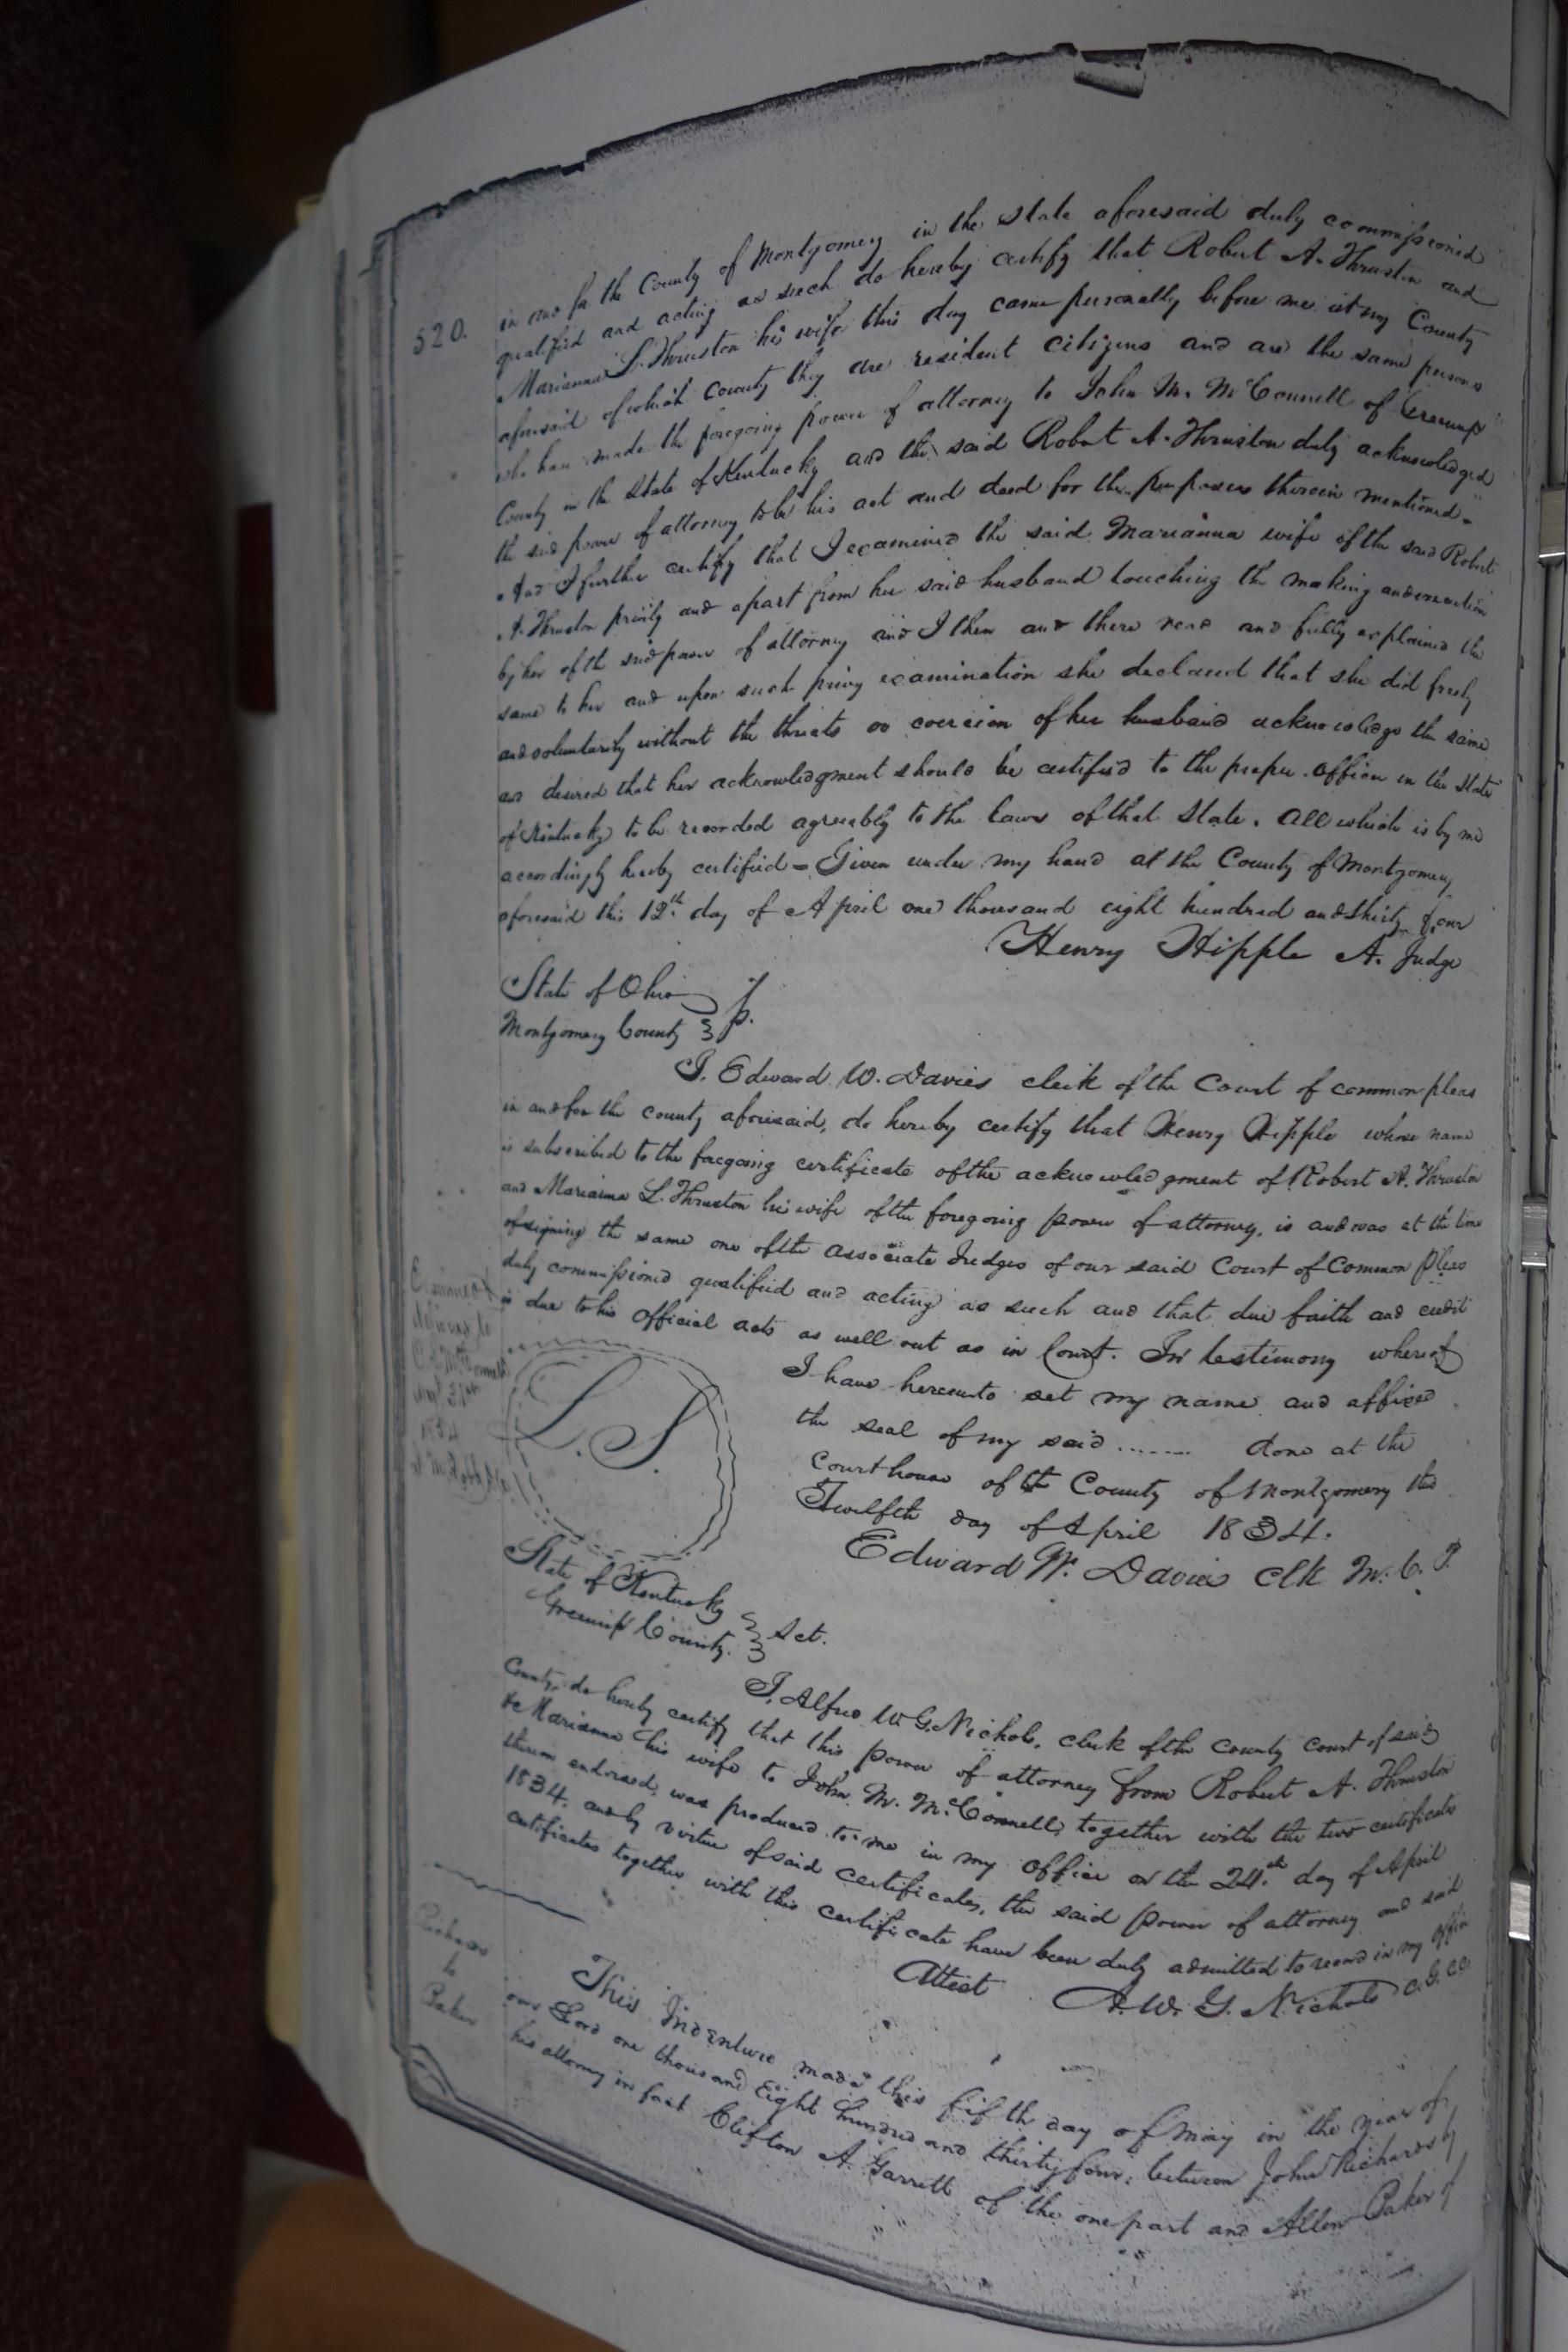 520.
in and for the County of Montgomery in the state aforesaid duly commissioned
qualified and acting as such do hereby certify that Robert A. Thruston and
Marianna L. Thruston his wife this day came personally before me at my County
aforesaid of which County they are resident citizens and are the same persons
who have made the foregoing power of attorney to John M. McConnell of Greenup
County in the State of Kentucky and the said Robert A. Thruston duly acknowledged
the said power of attorney to be his act and deed for the purposes therein mentioned =
And I further certify that I examined the said Marianna wife of the said Robert
A. Thruston privily and apart from her said husband touching the making and execution
by her of the said power of attorney and I then and there read and fully explained the
same to her and upon such privy examination she declared that she did freely
and voluntarily without the threats or coercion of her husband acknowledge the same
and desired that her acknowledgment should be certified to the proper officer in the State
of Kentucky to be recorded agreeably to the laws of that State. All which is by me
accordingly hereby certified = Given under my hand at the County of Montgomery
aforesaid this 12th day of April one thousand eight hundred and thirty four
Henry Hipple A. Judge
State of Ohio
Montgomery County
I, Edward W. Davies clerk of the Court of common pleas
in and for the county aforesaid, do hereby certify that Henry Hipple whose name
is subscribed to the foregoing certificate of the acknowledgment of Robert A. Thruston
and Marianna L. Thruston his wife of the foregoing power of attorney, is and was at the time
of signing the same one of the associate Judges of our said Court of Common Pleas
duly commissioned qualified and acting as such and that due faith and credit
is due to his official acts as well out as in Court. In testimony whereof
I have hereunto set my name and affixed
the seal of my said ....... done at the
Courthouse of the County of Montgomery this
Twelfth day of April 1834.
Edward W. Davies Clk M. C. P.
L.S.
Examined &
delivered to
1834
State of Kentucky
Greenup County. Sct.
I, Alfred W. G. Nichols, clerk of the county court of said
County, do hereby certify that this power of attorney from Robert A. Thruston
& Marianna his wife to John M. McConnell, together with the two certificates
thereon endorsed, was produced to me in my office on the 24th day of April
1834. and by virtue of said certificates, the said power of attorney and said
certificates together with this certificate have been duly admitted to record in my office
Attest A. W. G. Nichols C.G.C.C.
Richards
to
Baker
This Indenture made this fifth day of May in the year of
our Lord one thousand Eight hundred and thirty four, between John Richards by
his attorney in fact Clifton A. Garrett of the one part and Allen Baker of